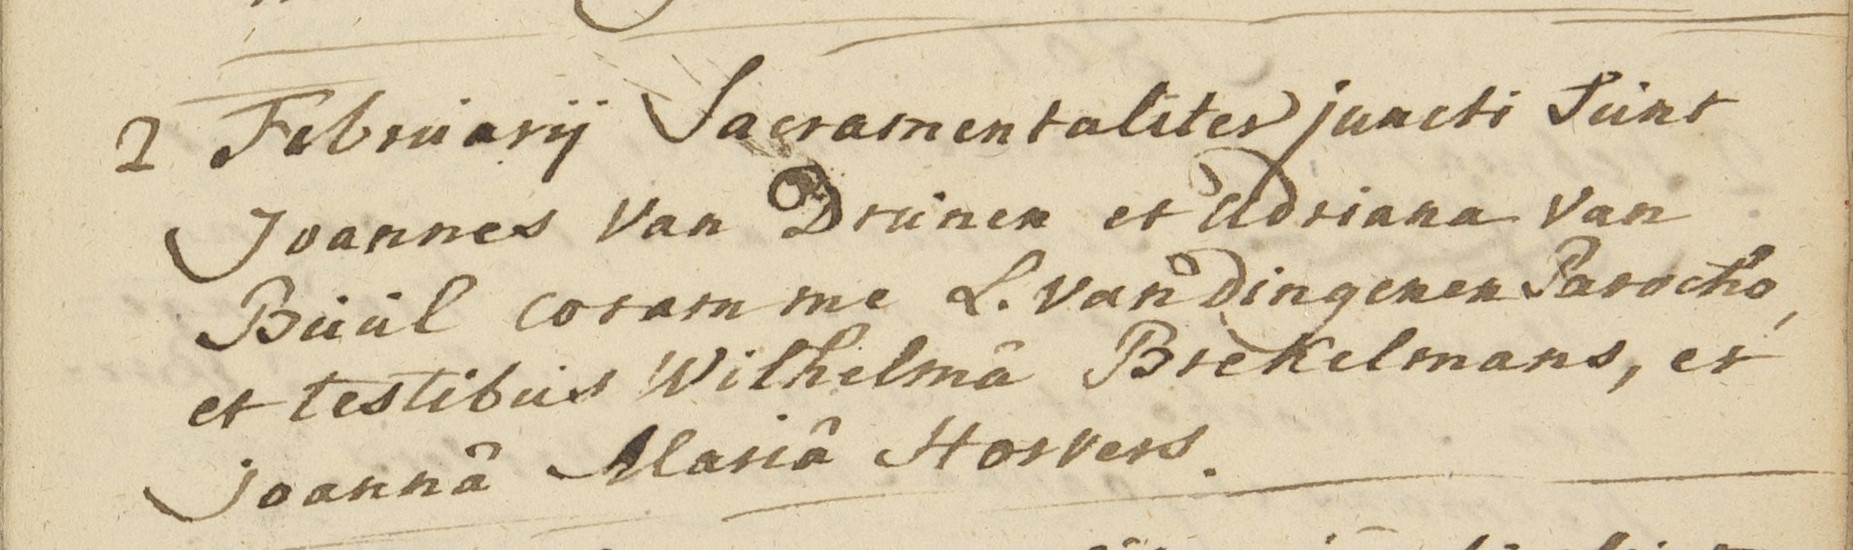 2 Februarij Sacramentaliter juncti sunt
Joannes Van Drunen et Adriana Van
Buül coram me L. van Dingenen Parocho,
et testibus Wilhelmâ Brekelmans, et
Joannâ Mariâ Horvers.